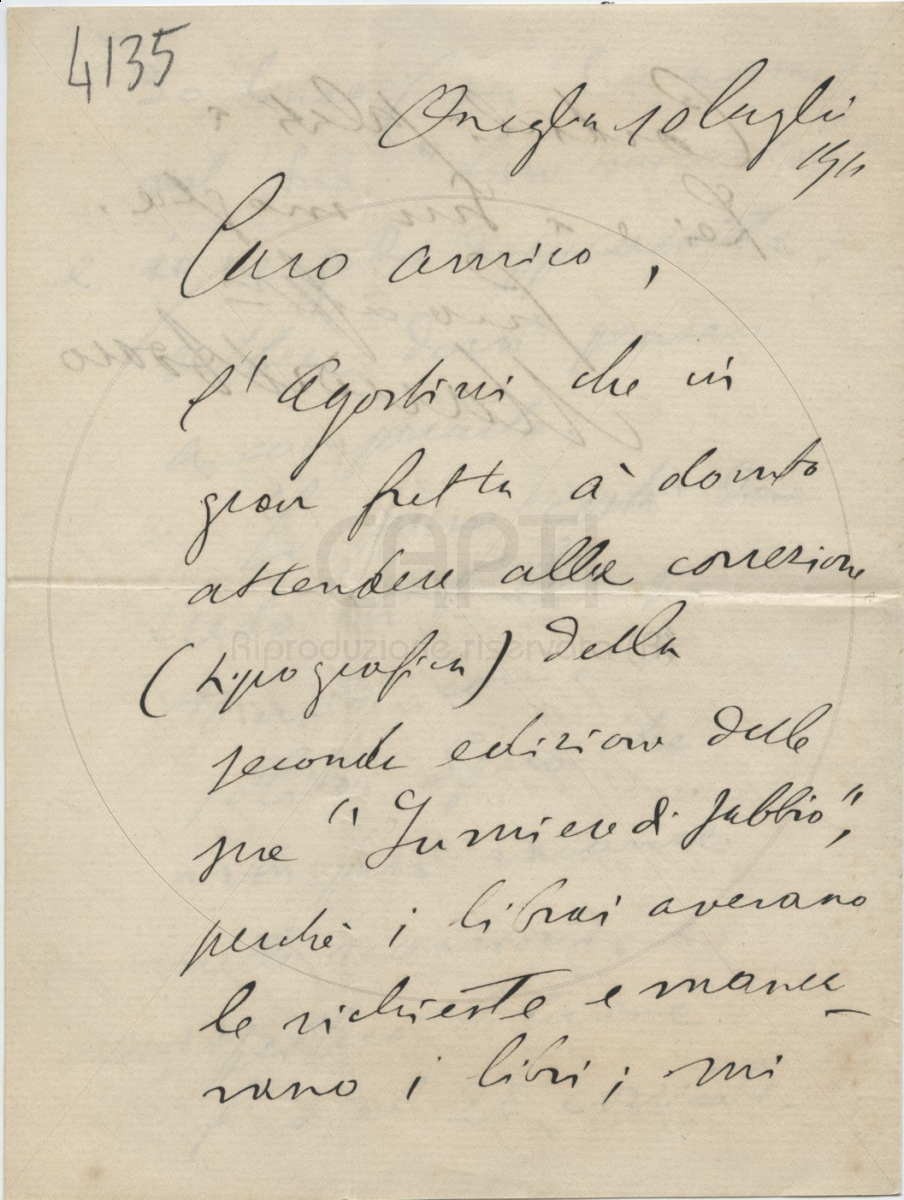 4135
Oneglia 10 Lugli
1911
Caro amico,
l'Agostini che in
gran fretta à dovuto
attendere alla correzione
(tipografica) della
seconda edizione delle
sue "Fumiere di Gubbio",
perchè i librai avevano
le richieste e manca-
vano i libri; mi
CAPTI
Riproduzione riservata